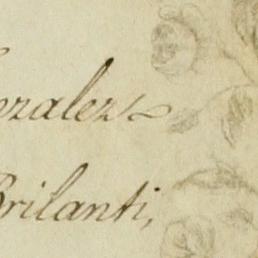 ezalez
Brilanti,